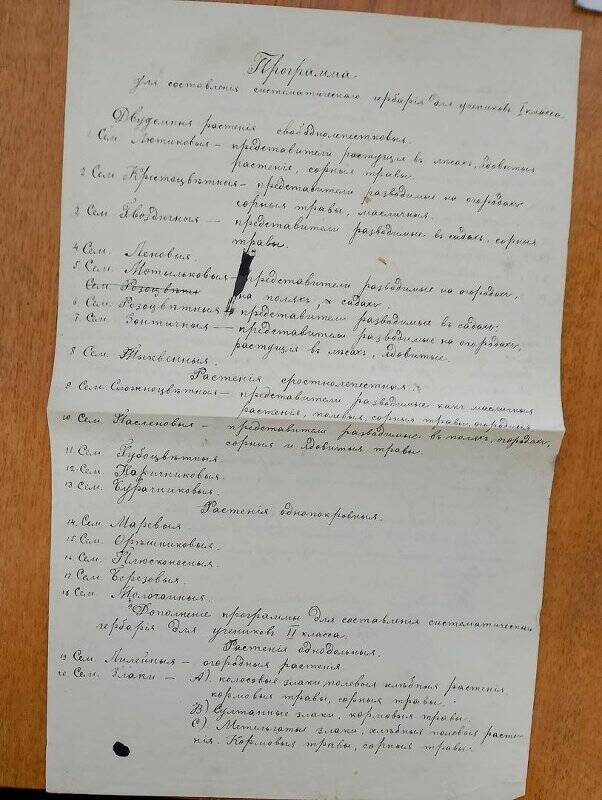 Программа
для составленія систематическаго гербарія для учениковъ I класса.
Двудомныя растенія свободнолепестковыя.
1 Сем. Лютиковыя — представители растущіе въ лѣсахъ, ядовитыя
растенія, сорныя травы.
2 Сем. Крестоцвѣтныя — представители разводимые на огородахъ
сорныя травы, масличныя.
3 Сем. Гвоздичныя — представители разводимые въ садахъ, сорныя
травы.
4 Сем. Леновыя.
5. Сем. Мотыльковыя — представители разводимые на огородахъ,
Сем Розоцвѣтн на поляхъ, садахъ.
6 Сем. Розоцвѣтныя — представители разводимые въ садахъ.
7 Сем. Зонтичныя — представители разводимые на огородахъ,
растущія въ лѣсахъ, ядовитые.
8 Сем. Тыквенныя.
Растенія сростнолепестныя.
9. Сем. Сложноцвѣтныя — представители разводимые какъ масличныя
растенія, полевыя сорныя травы, огородныя
10 Сем. Пасленовыя — представители разводимые въ поляхъ, огородахъ,
сорныя и ядовитыя травы.
11 Сем. Губоцвѣтныя.
12 Сем. Наричниковыя.
13 Сем. Бурачниковыя.
Растенія однопокровныя.
14. Сем. Маревыя
15. Сем. Орѣшниковыя.
16. Сем. Плюсконосныя.
17. Сем. Березовыя.
18 Сем. Молочайныя.
Дополненіе программы для составленія систематическаго
гербарія для учениковъ II класса.
Растенія однодольныя.
19 Сем. Лилейныя — огородныя растенія
20 Сем. Злаки — А). колосовые злаки, полевыя хлѣбныя растенія,
кормовыя травы, сорныя травы.
В) Султанные злаки, кормовыя травы.
С). Метельчатые злаки, хлѣбныя полевыя расте-
нія. Кормовыя травы, сорныя травы.